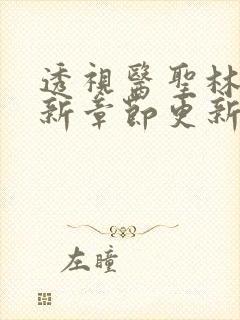 透視醫聖林
新章節更新
左瞳